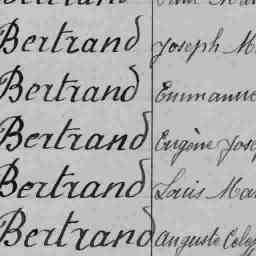 Bertrand Joseph M
Bertrand Emmanue
Bertrand Eugène Jose
Bertrand Louis Ma
Bertrand Auguste